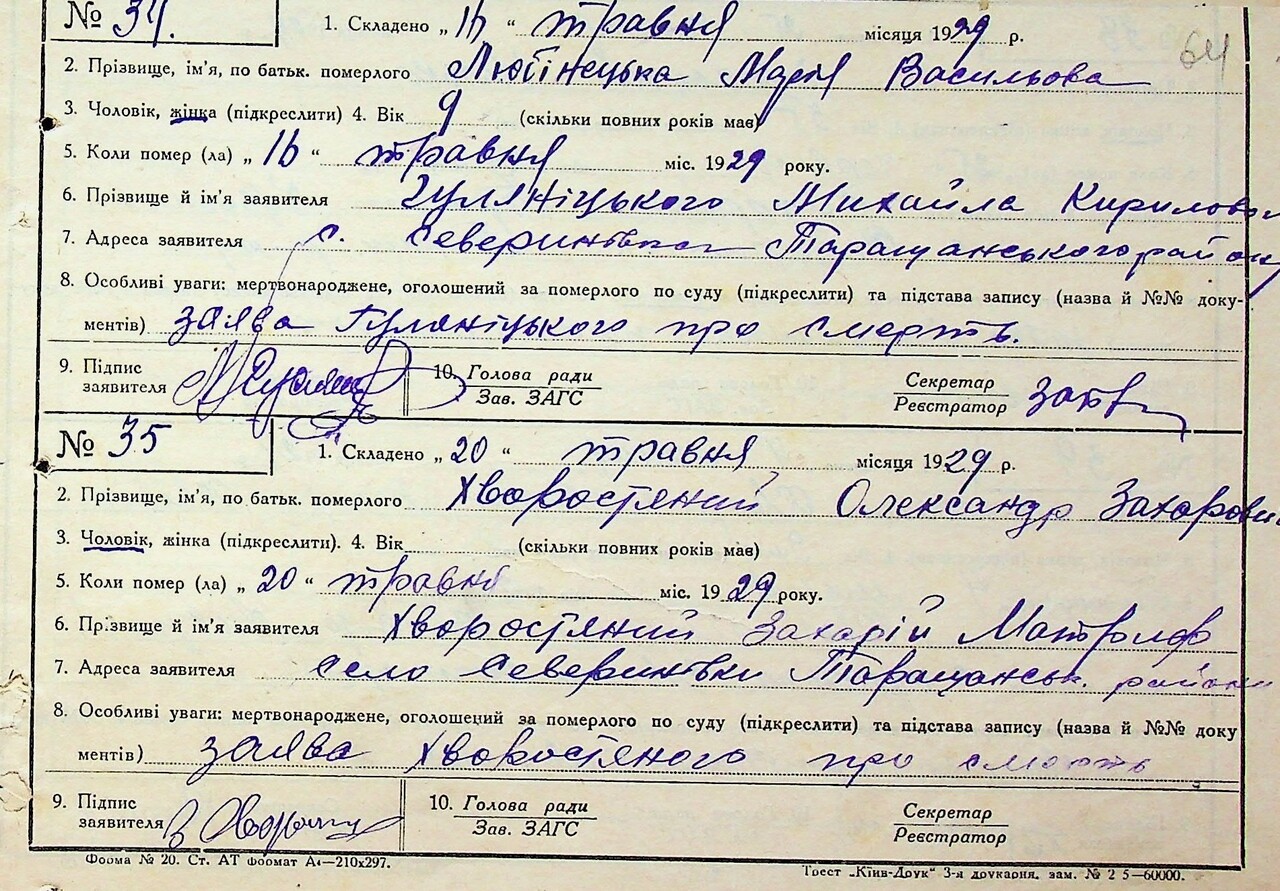 № 34. 1. Складено „ 16 “ травня місяця 1929 р.
64
2. Прізвище, ім'я, по батьк. померлого Любінецька Марія Васильова
3. Чоловік, жінка (підкреслити) 4. Вік 9 (скільки повних років має)
5. Коли помер (ла) „ 16 “ травня міс. 1929 року.
6. Прізвище й ім'я заявителя Гуляніцького Михайла Кирилови
7. Адреса заявителя с. Северинівка Таращанського району
8. Особливі уваги: мертвонароджене, оголошений за померлого по суду (підкреслити) та підстава запису (назва й №№ доку-
ментів) заява Гуляніцького про смерть.
9. Підпис заявителя 10. Голова ради Зав. ЗАГС Секретар Реєстратор
№ 35 1. Складено „ 20 “ травня місяця 1929 р.
2. Прізвище, ім'я, по батьк. померлого Хворостяний Олександр Захарови
3. Чоловік, жінка (підкреслити). 4. Вік (скільки повних років має)
5. Коли помер (ла) „ 20 “ травня міс. 1929 року.
6. Прізвище й ім'я заявителя Хворостяний Захарій
7. Адреса заявителя село Северинівки Таращанськ. району
8. Особливі уваги: мертвонароджене, оголошений за померлого по суду (підкреслити) та підстава запису (назва й №№ доку
ментів) заява Хворостяного про смерть
9. Підпис заявителя 10. Голова ради Зав. ЗАГС Секретар Реєстратор
Форма № 20. Ст. АТ Формат А4—210х297. Трест „Київ-Друк“ 3-я друкарня. зам. № 2 5—60000.